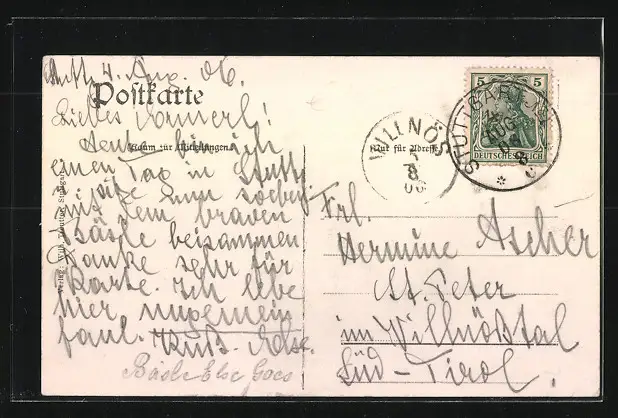 Stuttg. 4. Aug. 06.
Postkarte
Liebes Nannerl!
Heute bin ich
Raum zur Mitteilungen
einen Tag in Stuttg.
sitze nun soeben
mit dem braven
Bäsle beisammen
Danke sehr für
Karte. Ich lebe
hier ungemein
faul. Kuß - Else.
Bäsle Else Goes
Verlag: Wilh. Stuttgart
Nur für Adresse
VILLNÖS
8
06
STUTTGART
AUG
06
5 5
DEUTSCHES REICH
Frl.
Hermine Ascher
St. Peter
im Willnößtal
Süd-Tirol.